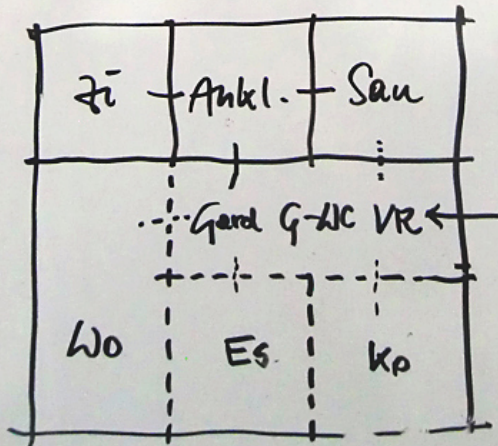 Zi Ankl. San
Gard G-WC VR
Wo Es Ko